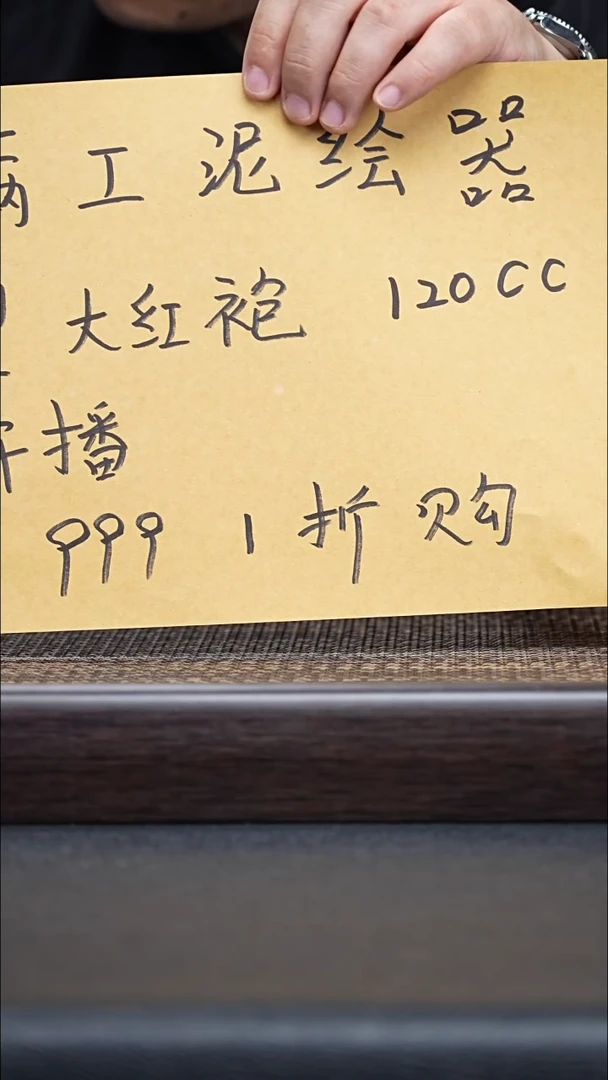 工泥绘器
大红袍 120CC
播
999 1折购